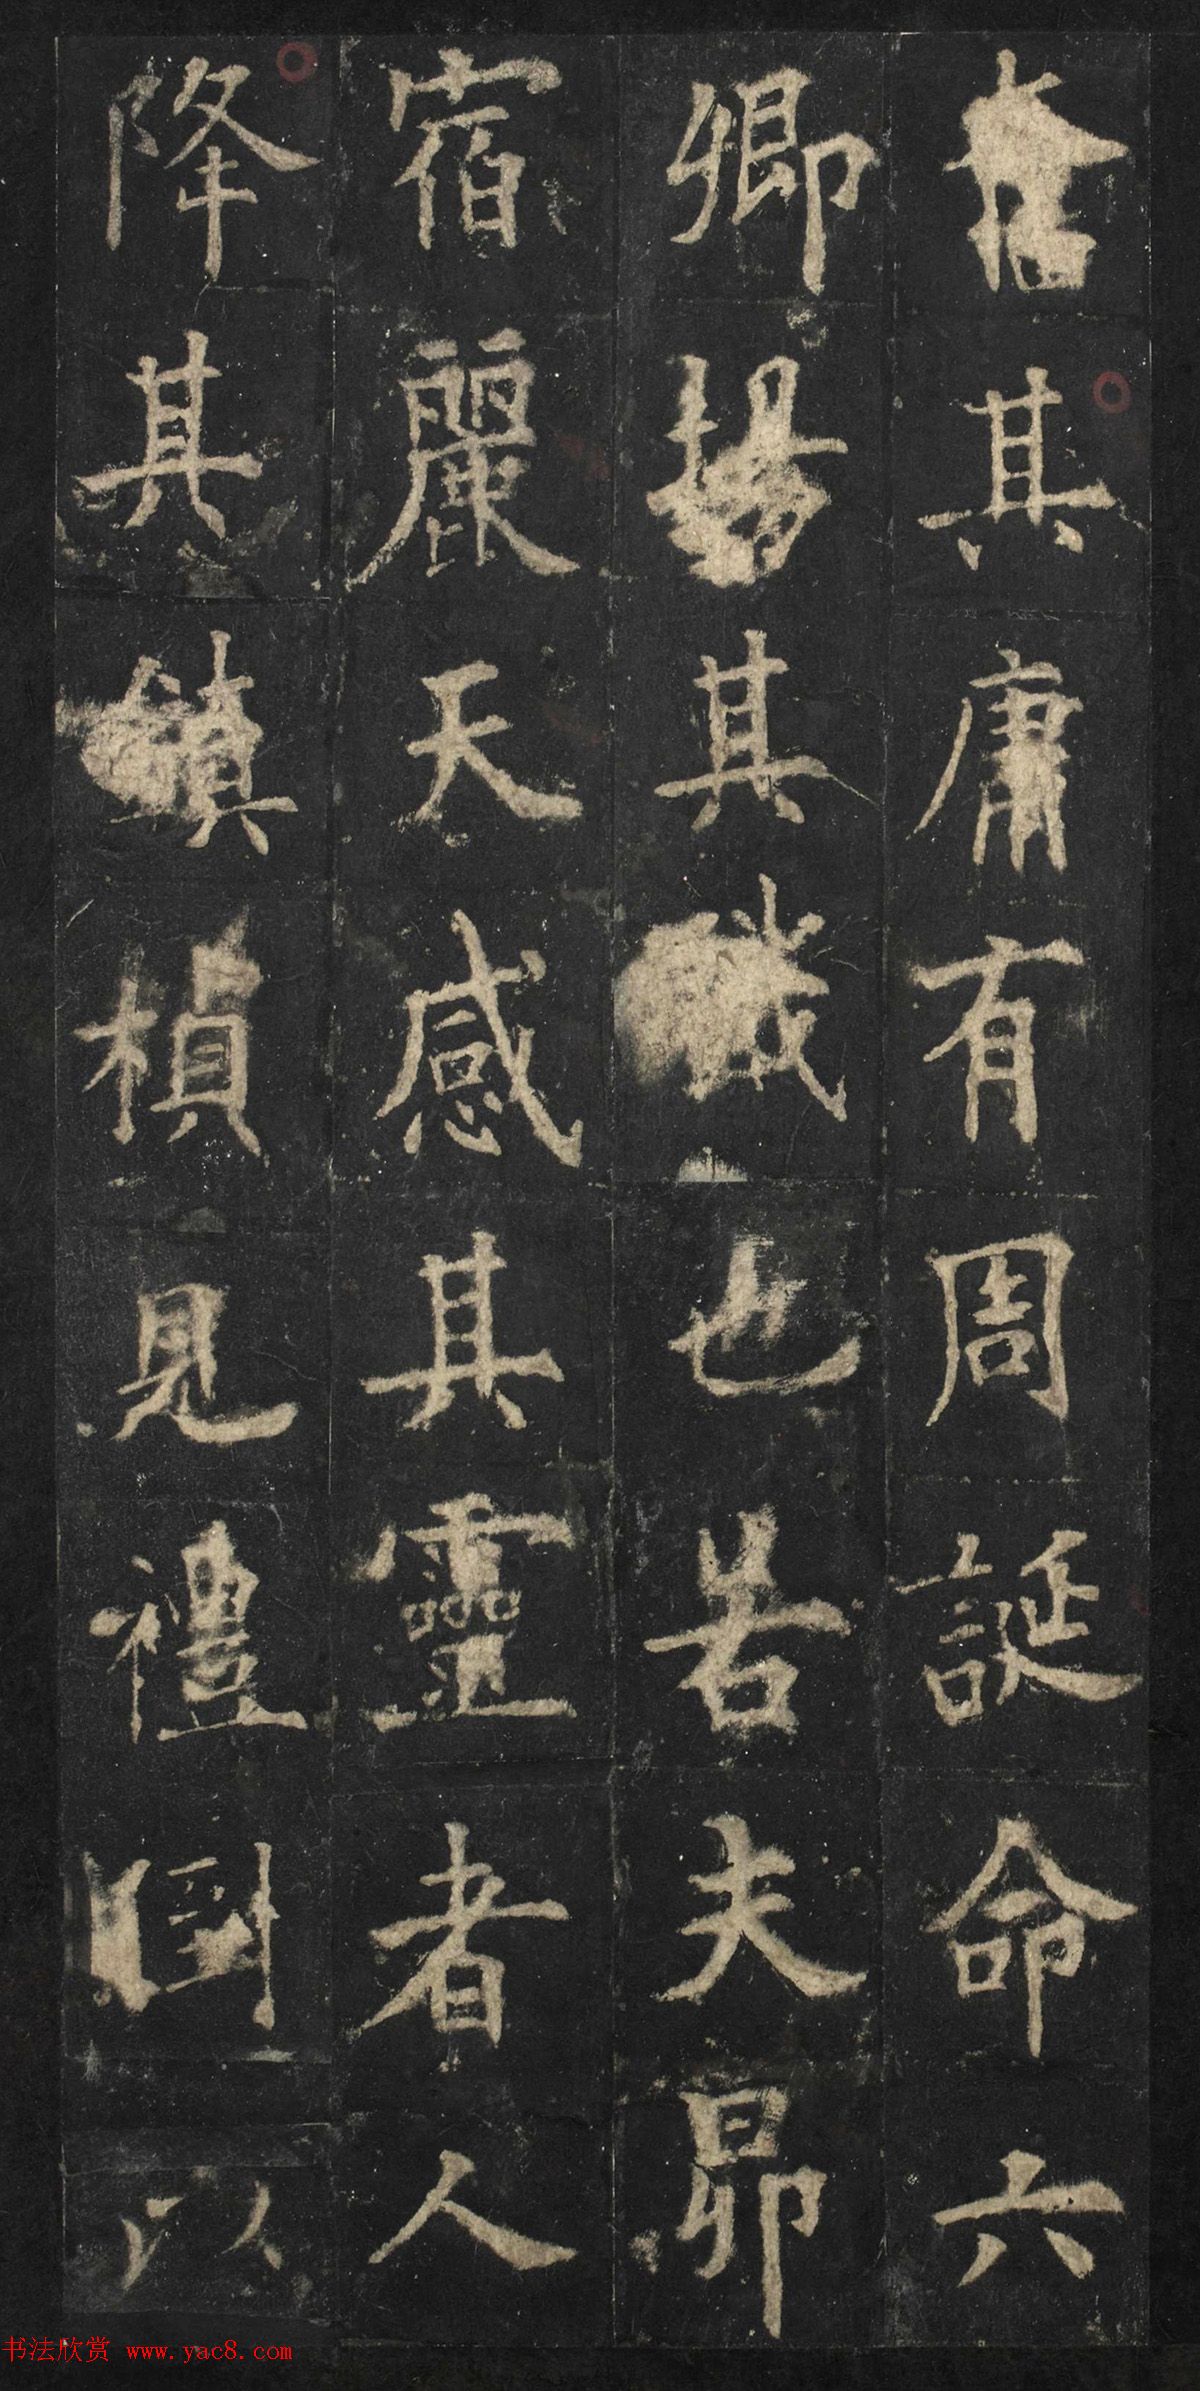 其庸有周誕命六
卿揚其職也若夫昴
宿麗天感其靈者人
降其鎮楨見禮以
书法欣赏 www.yac8.com